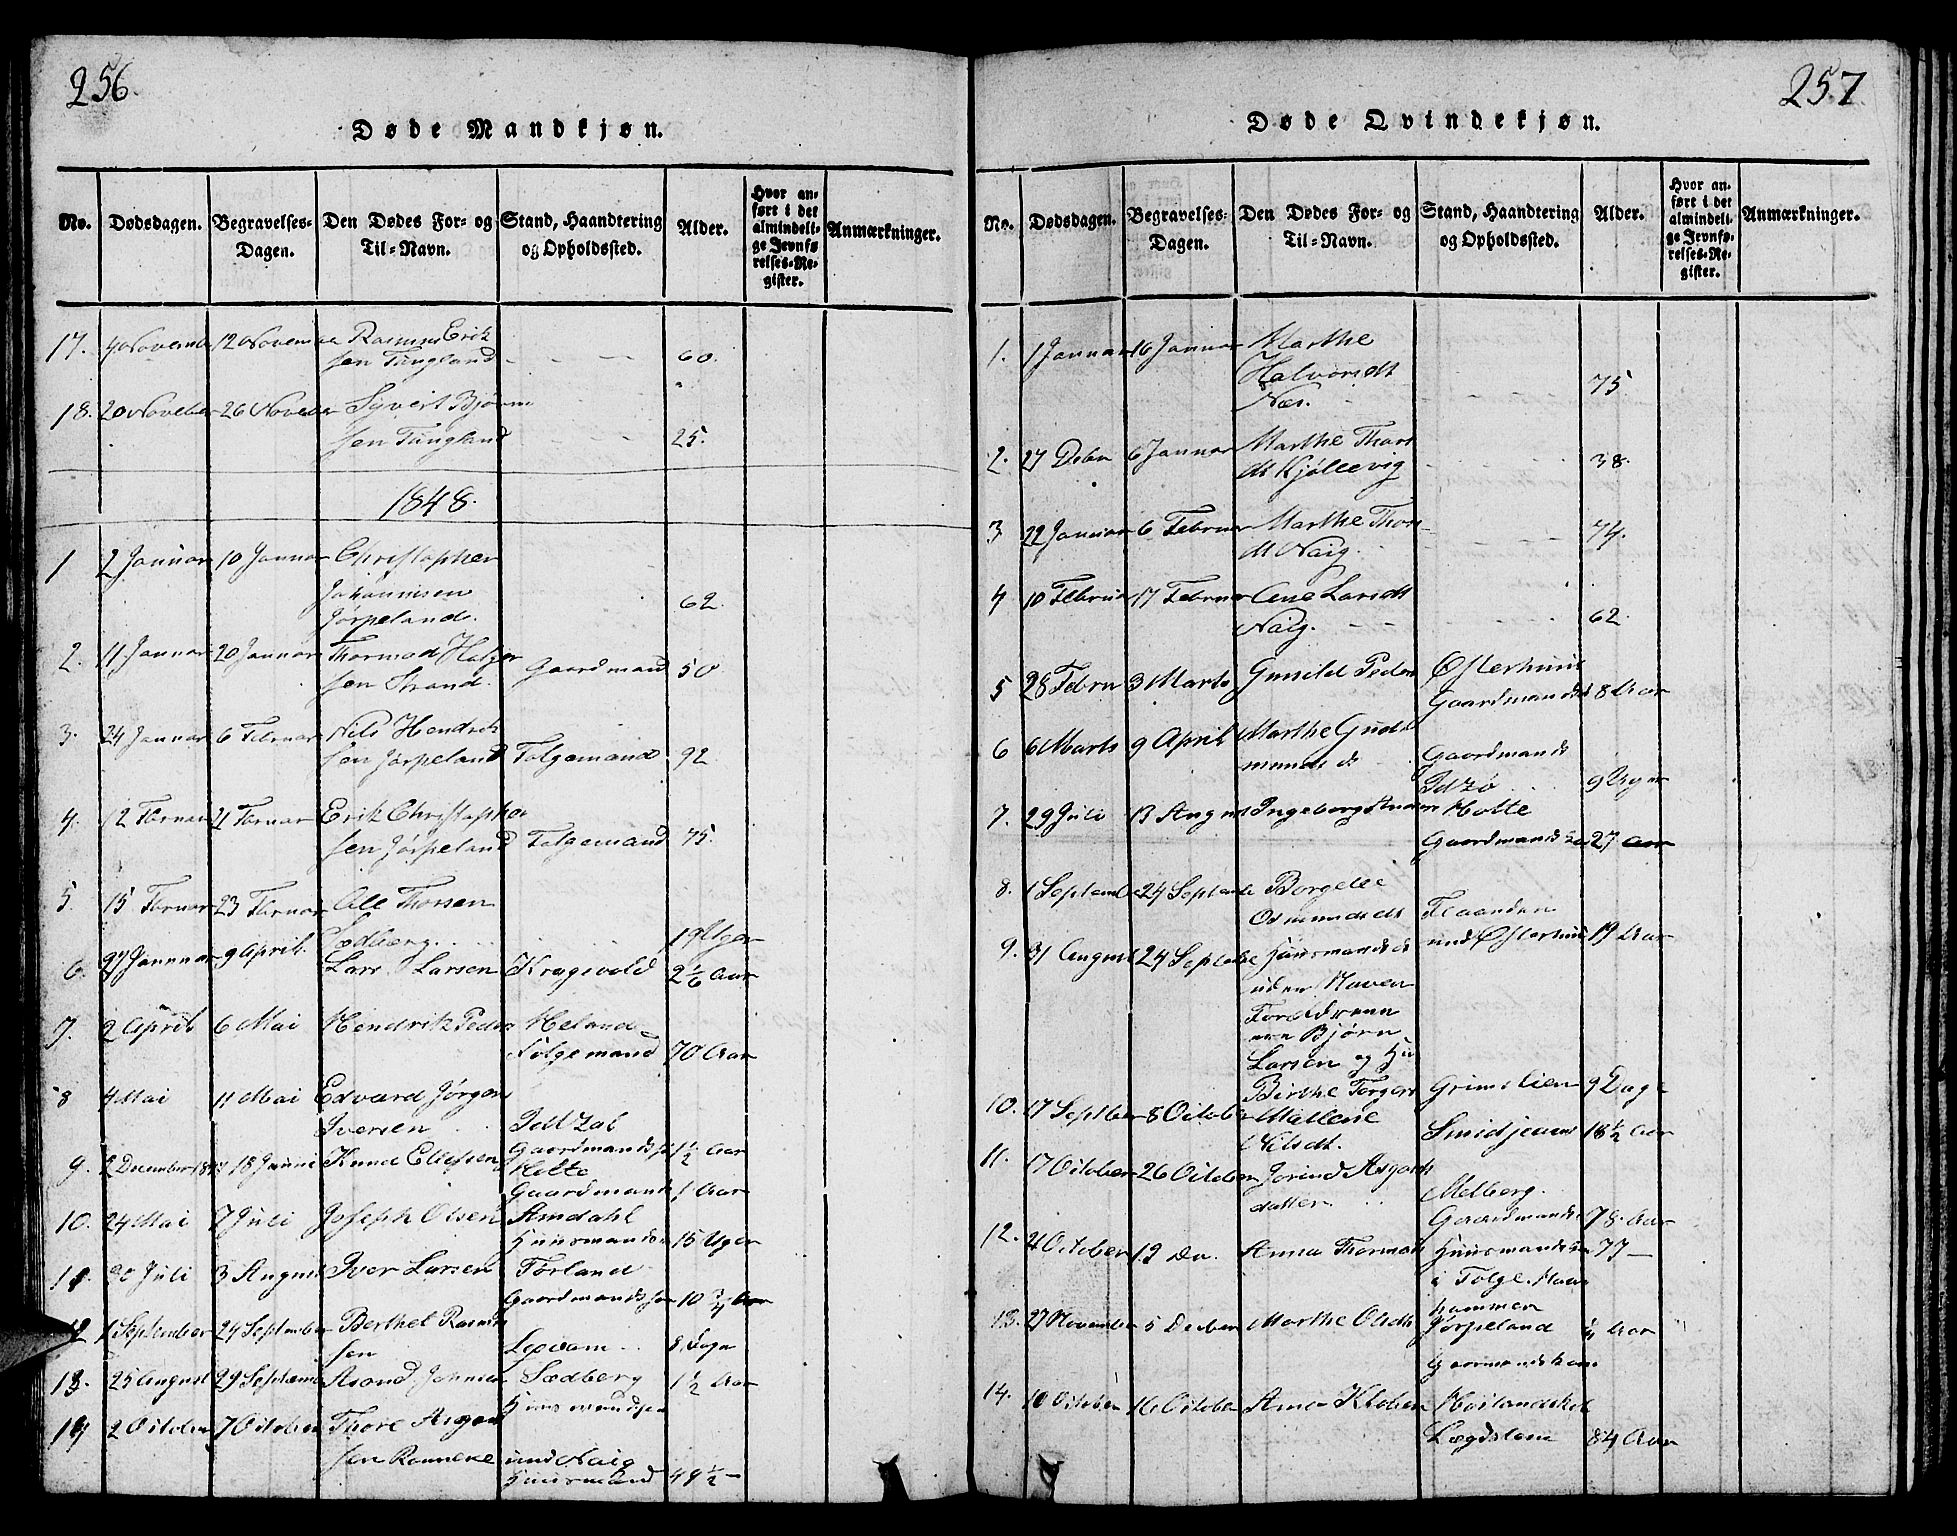 256.
Døde Mandkjøn.
No. Dødsdagen. Begravelses-Dagen. Den Dødes For- og Til-Navn. Stand, Haandtering og Opholdssted. Alder. Hvor anført i det almindelige Jevnførelses-Register. Anmærkninger.
17. 4 November 12 November Rasmus Erik
sen Tungland 60.
18. 20 November 26 November Syvert Bjørn
sen Tungland 25.
1848.
1 2 Januar 10 Januar Christopher
Johannesen
Jørpeland. 62.
2. 11 Januar 20 Januar Thormod Holger
sen Strand. Gaardmand 50
3. 24 Januar 6 Februar Nils Hendrik
sen Jørpeland Følgemand. 92
4. 12 Februar 21 Februar Erik Christopher
sen Jørpeland Følgemand 75.
5. 15 Februar 23 Februar Ole Thorsen
Sedberg. 19 Uger
6. 27 Januar 9 April. Lars Larsen Kragevold 2 1/6 Aar
7. 2 April 6 Mai Hendrik Peders Heland
Følgemand 70 Aar
8 4 Mai 11 Mai Edvard Jørgen
Iversen Idzøe
Gaardmands 1 1/2 Aar
9. 2 December 18 Juni Knud Ellefsen Holte
Gaardmands 1 Aar
10. 24 Mai 7 Juli Joseph Olsen Amdahl
Huusmands 15 Uger
11. 30 Juli 3 August Iver Larsen Førland
Gaardmandssøn 10 3/4 Aar
12 1 September 24 September Berthel Rasmus
sen Leqvam. 8 Dage
13. 25 August 29 September Asond Jonsen Sødberg 1 1/2 Aar
Huusmandssøn
14 2 October 7 October Thore Asgaut
sen Ronneke und Naig
Huusmand 49 1/2 —
257.
Døde Qvindekjøn.
No. Dødsdagen. Begravelses-Dagen. Den Dødes For- og Til-Navn. Stand, Haandtering og Opholdssted. Alder. Hvor anført i det almindelige Jevnførelses-Register. Anmærkninger.
1. 1 Januar 16 Januar Marthe
Halvorsdt
Næs. 75
2. 27 Debr 6 Januar Marthe Thors
dt Kjøllevig 38.
3 22 Januar 6 Februar Marthe Thors
dt Naig. 74.
4 10 Februar 17 Februar Ane Larsdt
Naig. 62.
5 28 Febru 3 Marts Gunild Peders Østerhuus
Gaardmandsd 8 Aar
6 6 Marts 9 April Marthe Gudt
mundsd Gaardmands
Idzø 9 Uger
7. 29 Juli 13 August Ingeborg Anders Holte
Gaardmands 27 Aar
8. 1 September 24 September Borgele
Osmundsdt Flaanden
und Østerhuus 19 Aar
9. 31 August 24 September Huusmandsd
uden Navn
Forældrene
ere Bjørn
Larsen og Hu
Birthe Torgers Grimslien 9 Dage
10. 17 September 8 October Mallene
Nilsdt. Smidjeaas 18 1/2 Aar
11. 17 October 26 October Jorind Asgauts
datter. Melberg.
Gaardmands 78 Aar
12. 4 October 12 Do. Anna Thormods Huusmands 77 —
i Følge.
hammer
13. 27 November 5 Decber Marthe Olsdt Jørpeland 1/4 Aar
Gaarmands
14. 10 October 16 October Anna Høilandskol
Lægdslem 84 Aar